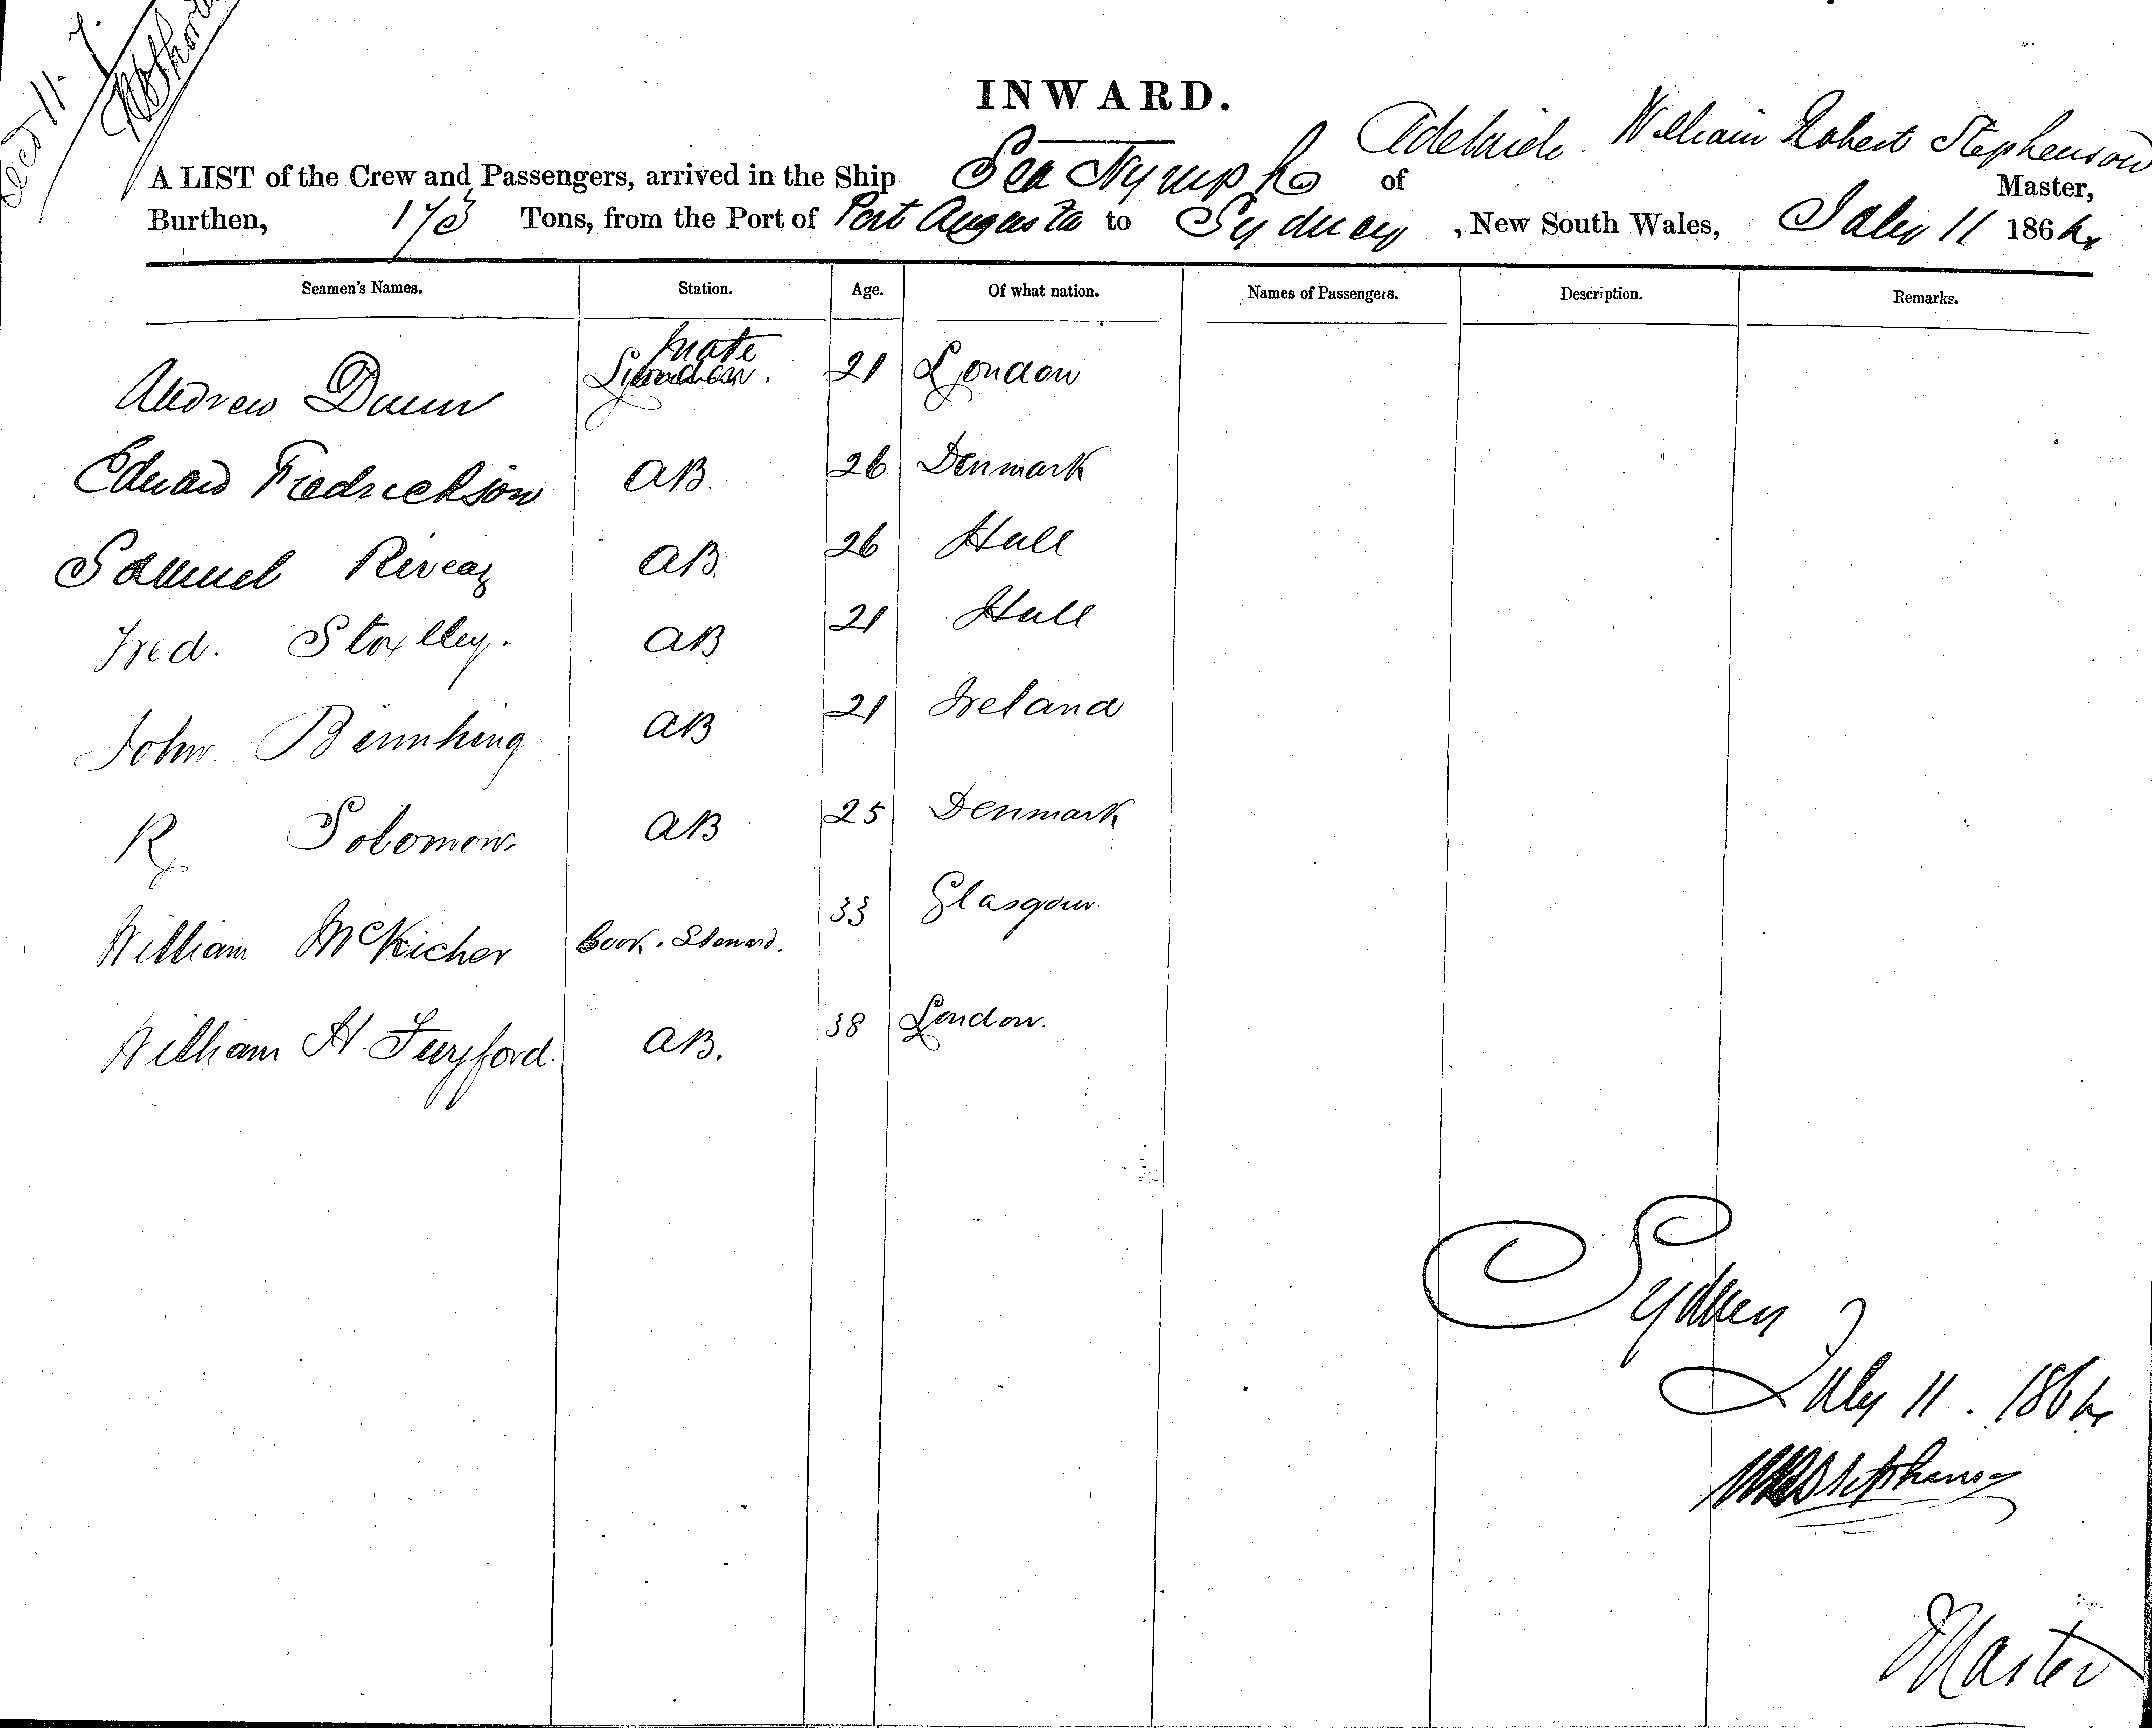 INWARD.
A LIST of the Crew and Passengers, arrived in the Ship Sea Nymph of Adelaide William Robert Stephenson Master,
Burthen, 173 Tons, from the Port of Port Augusta to Sydney, New South Wales, July 11 1864
Seamen's Names. Station. Age. Of what nation. Names of Passengers. Description. Remarks.
Andrew Dunn Mate 21 London
Edward Fredrickson AB. 26 Denmark
Samuel AB. 26 Hull
Fred. AB 21 Hull
John AB 21 Ireland
R Solomon AB 25 Denmark
William McKicher Cook. Steward. 33 Glasgow.
William H AB. 38 London.
Sydney
July 11. 1864
WRStephenson
Master